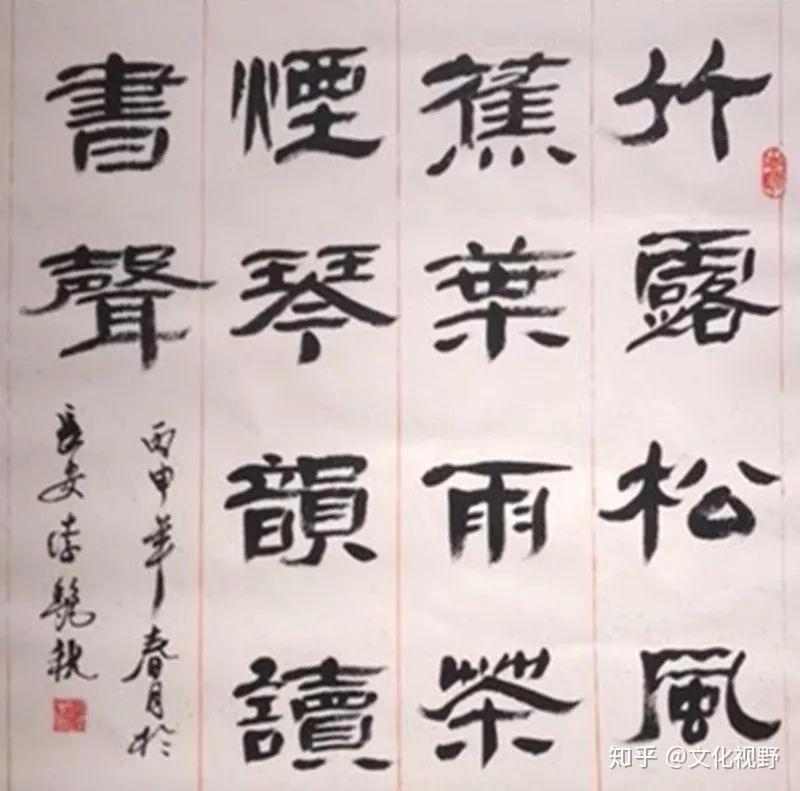 竹露松風
蕉葉雨茶
煙琴韻讀
書聲
丙申年春月於
長安
知乎 @文化视野